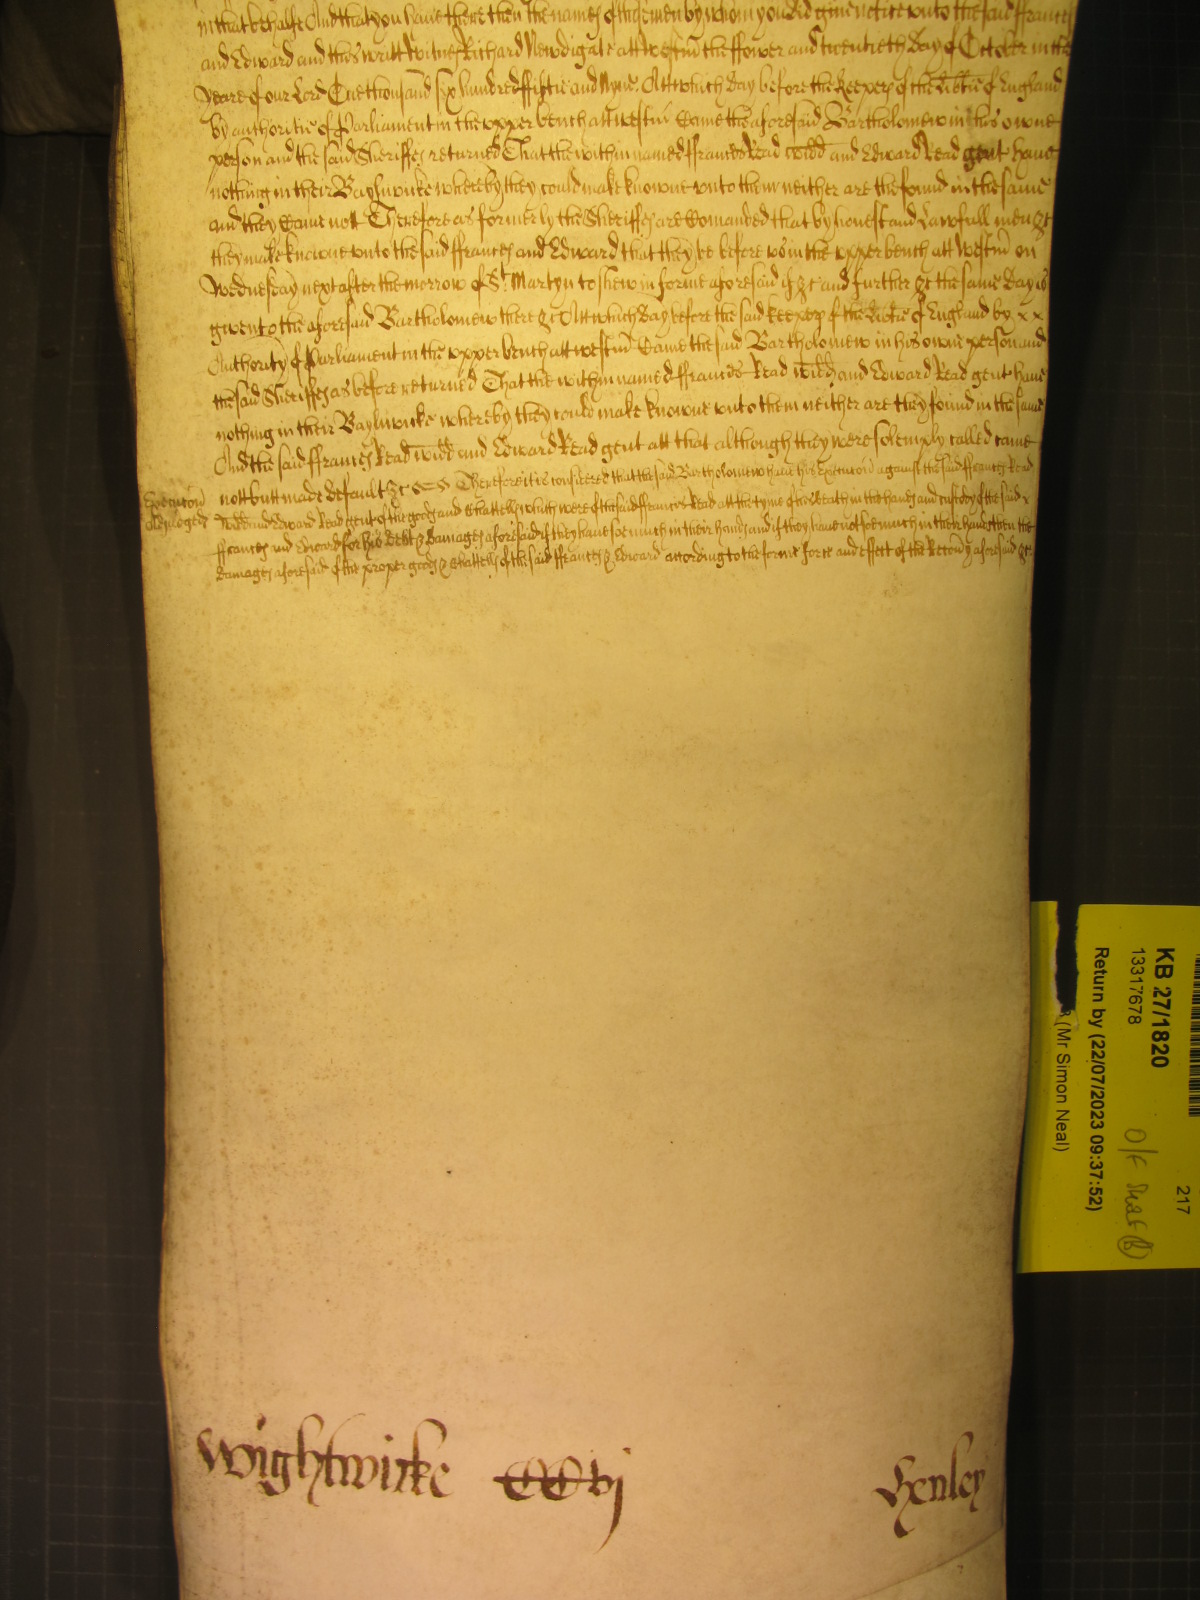 in that behalfe And that you have there then the names of those men by whom you did give notice unto the said ffrances
and Edward and this writt Witnes Richard Newdigate att Westm̃ the ffower and twentieth day of October in the
yeare of our Lord One thousand six hundred fiftie and Nyne. Att which day before the keepers of the libtie of England
by authoritie of Parliament in the upper bench att westm̃ Came the aforesaid Bartholomew in his owne
person and the said Sheriffes returned That the within named ffrances Read widd and Edward Read gent have
nothing in their Bayliwicke whereby they could make knowne unto them neither are the found in the same
and they Came not Therefore as formerly the Sheriffes are Comanded that by honest and Lawfull men &c
they make knowne unto the said ffrances and Edward that they be before us in the upper bench att Westm̃ on
Wednesday next after the morrow of St Martyn to shew in forme aforesaid if &c and further &c the same day is
given to the aforesaid Bartholomew there &c Att which day before the said keepers of the libtie of England by x x
Authority of Parliament in the upper bench att westm̃ Came the said Bartholomew in his owne person and
the said Sheriffes as before returned That the within named ffrances Read widd and Edward Read gent have
nothing in their Bayliwicke whereby they could make knowne unto them neither are they found in the same
And the said ffrances Read widd and Edward Read gent att that although they were solemply called came
not butt made default &c Therefore it is considered that the said Bartholomew have his Execucõn against the said ffrances Read
Execucõn
widd and Edward Read gent of the goods and Chattells which were of the said ffrancis Read att the tyme of his death in the hands and custody of the said x
ffrances and Edward for his debt & damages aforesaid if they have soe much in their hands and if they have not soe much in their hands then the
damages aforesaid of the proper goods & Chattells of the said ffrances & Edward according to the forme force and effect of the Recovỹ aforesaid &c
Wightwicke CCvj Henley
KB 27/1820
13317678
217
Return by (22/07/2023 09:37:52)
(Mr Simon Neal)